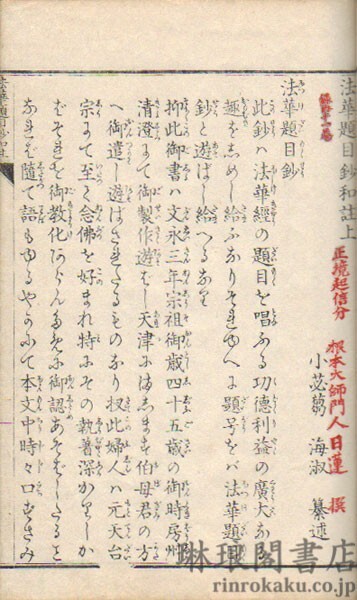 法華題目鈔和註上
正境起信分
根本大師門人日蓮 撰
小苾蒭 海淑 纂述
法華題目鈔
此鈔ハ法華經の題目を唱ふる功德利益の廣大なる
趣をしめし給ふなりそれゆへに題号をバ法華題目
鈔と遊バし給へるなり
抑此御書ハ文永三年宗祖御歳四十五歳の御時房州
清澄にて御製作遊バし天津にまします伯母君の方
へ御遣し遊ばされたるものなり扠此婦人ハ元天台
宗にて至く念佛を好まれ特にその執着深かりしか
バそれを御教化あらんために御認あそばしたると
なれば随て語もゆるやかにて本文中時々口ずさみ
琳琅閣書店
rinrokaku.co.jp